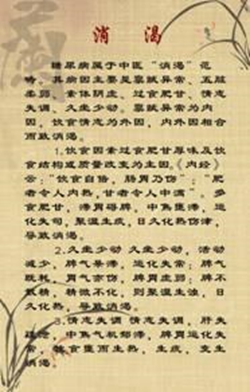 消 渴
糖尿病属于中医“消渴”范
畴，其病因主要是禀赋异常、五脏
柔弱、素体阴虚、过食肥甘、情志
失调、久坐少动。禀赋异常为内
因，饮食情志为外因，内外因相合
而致消渴。
1.饮食因素过食肥甘厚味及饮
食结构或质量改变为主因。《内经》
云：“饮食自倍，肠胃乃伤”；“肥
者令人内热，甘者令人中满”。多
食肥甘，滞胃碍脾，中焦壅滞，运
化失司，聚湿生痰，日久化热伤津，
导致消渴。
2.久坐少动 久坐少动，活动
减少，脾气呆滞，运化失常；脾气
既耗，胃气亦伤，脾胃虚弱；脾不
散精，精微不化，则聚湿生浊，日
久化热，导致消渴。
3.情志失调 情志失调，肝失
疏泄，中焦气机郁滞，脾胃运化失
常，饮食壅而生热，生痰，变生
消渴。